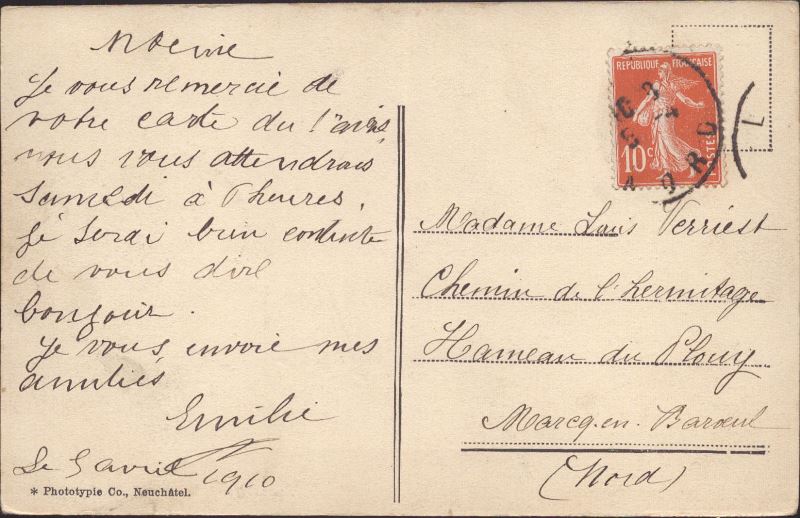 Je vous remercie de
votre carte du 1er avril
nous vous attendrais
Samedi à heures.
Je serai bien contente
de vous dire
bonjour.
Je vous envoie mes
amitiés
Emilie
Le 5 avril 1910
* Phototypie Co., Neuchâtel.
REPUBLIQUE FRANÇAISE
10c POSTES
Madame Louis Verriest
Chemin de l'hermitage
Hameau du Plouy
Marcq-en-Baroeul
(Nord)